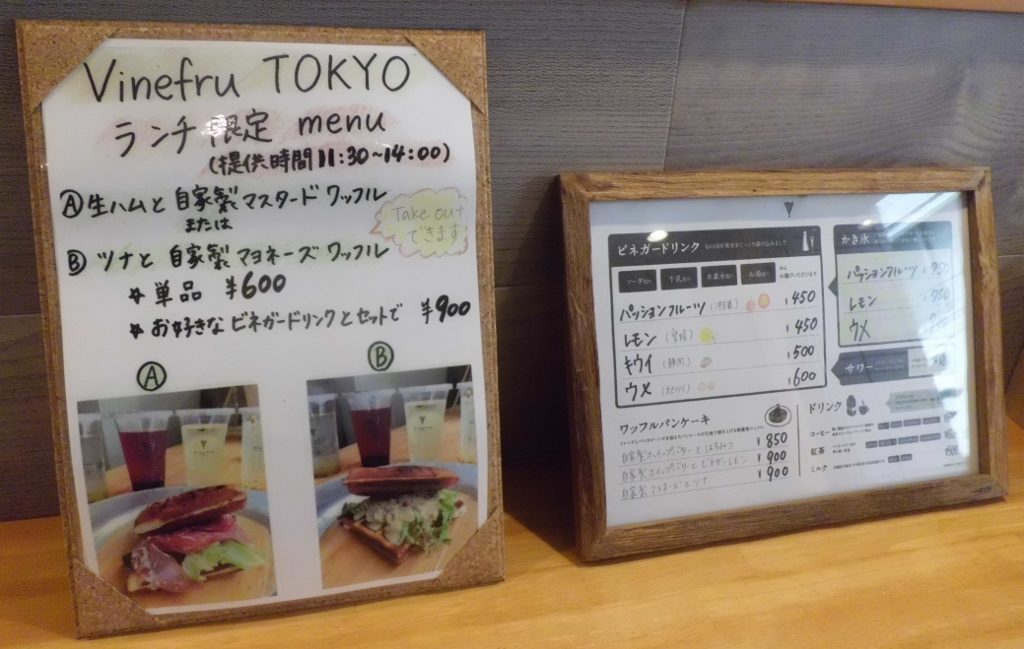 Vinefru TOKYO
ランチ限定 menu
(提供時間11:30~14:00)
Ⓐ生ハムと自家製マスタードワッフル
または
Ⓑツナと自家製マヨネーズワッフル
Take out
できます
単品 ¥600
お好きなビネガードリンクとセットで ¥900
Ⓐ
Ⓑ
ビネガードリンク
ソーダ
牛乳
水素水
お湯
から
パッションフルーツ ¥450
レモン ¥450
キウイ (静岡) ¥500
ウメ ¥600
かき氷
パッションフルーツ
レモン
ウメ
サワー
ワッフルパンケーキ
自家製ホイップバターとはちみつ ¥850
自家製ホイップバターとビネガーレモン ¥900
自家製マヨネーズとツナ ¥900
ドリンク
コーヒー
紅茶
ミルク